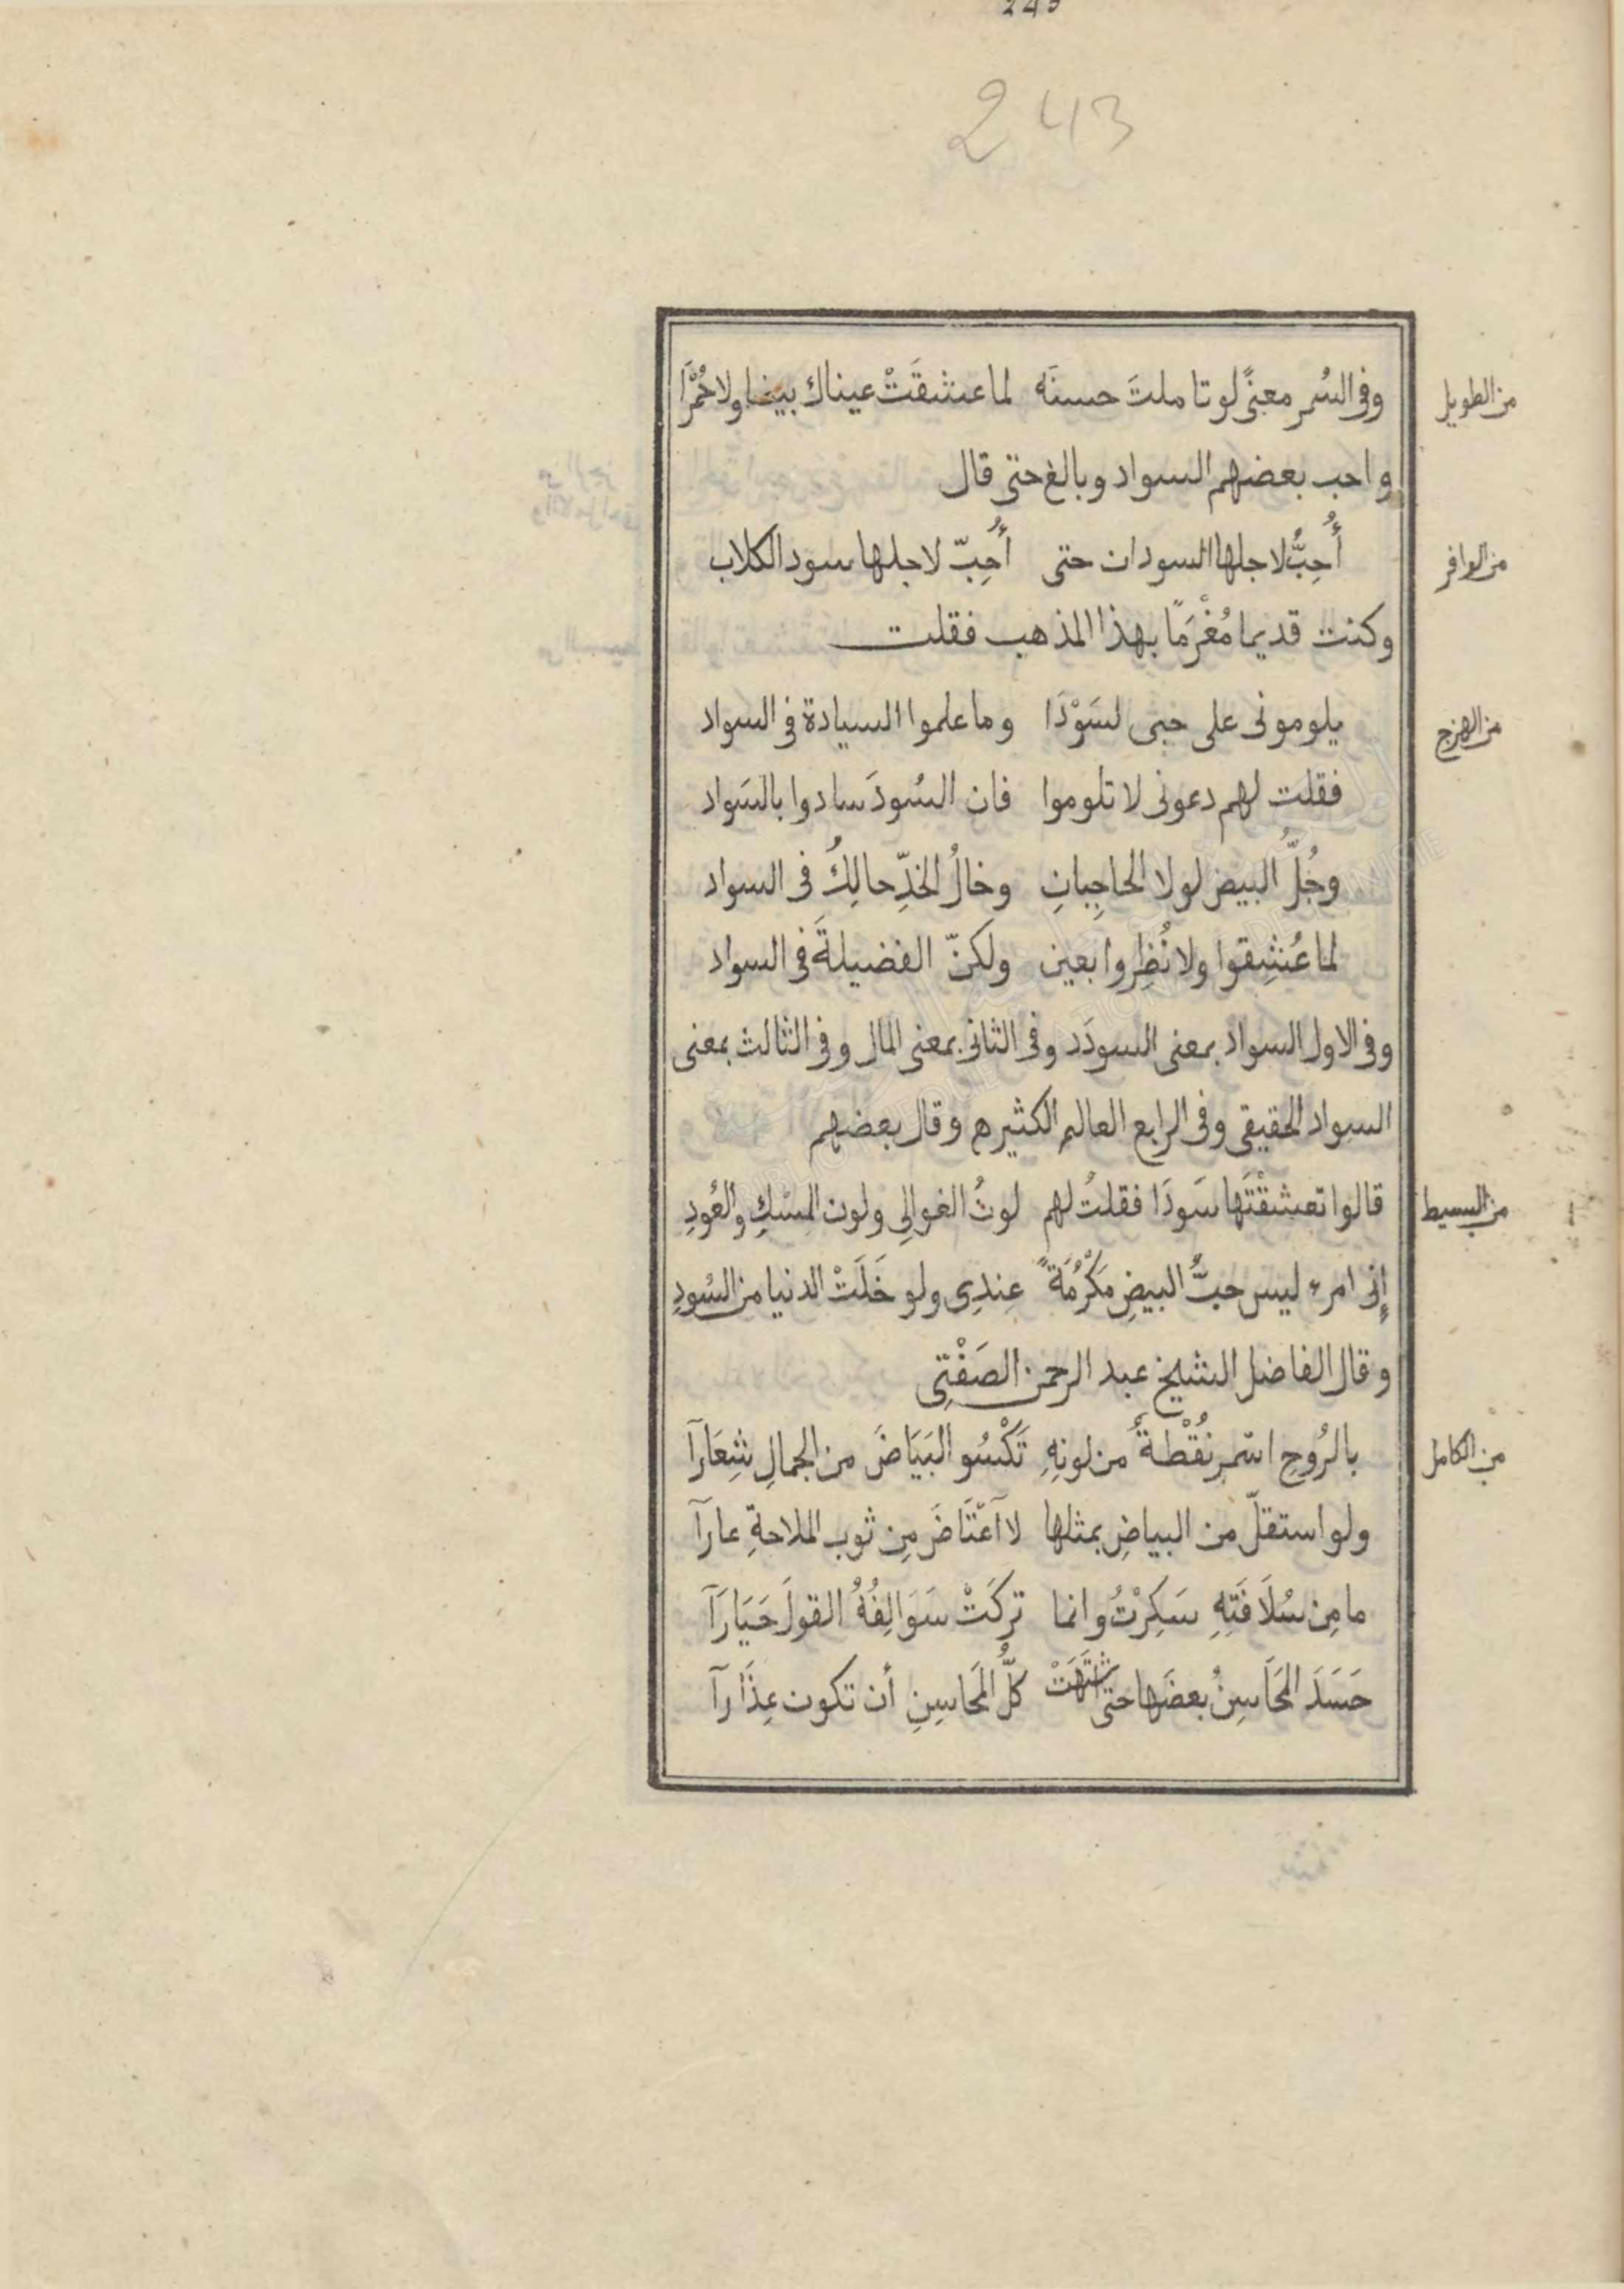 243
243
من الطويل
وفى السُمر معنىً لو تاملتَ حسنَه لما عشقَتْ عيناك بيضا ولا حُمْرَا
واحب بعضهم السواد وبالغ حتى قال
من الوافر
أُحِبُّ لاجلها السودان حتى أُحِبّ لاجلها سود الكلاب
وكنت قديما مُغْرَمًا بهذا المذهب فقلت
من الهزج
يلومونى على حبى لسَوْدَا وما علموا السيادة فى السواد
فقلت لهم دعونى لا تلوموا فان السُودَ سادوا بالسَواد
وجُلُّ البيض لولا الحاجِبانِ وخالُ الخدِّ حالِكُ فى السواد
لما عُشِقوا ولا نُظِروا بعين ولكنّ الفضيلةَ فى السواد
وفى الاول السواد بمعنى السودَد وفى الثانى بمعنى المال وفى الثالث بمعنى
السواد الحقيقى وفى الرابع العالم الكثيره وقال بعضهم
من البسيط
قالوا تعشقْتَها سَودَا فقلتُ لهم لونُ الغوالِى ولون المِسْكِ والعُودِ
إِنى امرء ليس حبُّ البيضِ مَكْرُمَةً عِندِى ولو خَلَتْ الدنيا من السُودِ
وقال الفاضل الشيخ عبد الرحمن الصَفْتِى
من الكامل
بالرُوحِ اسْمر نُقْطةٌ من لونِهِ تَكْسُو البَيَاضَ من الجمالِ شِعَارآ
ولو استقلّ من البياضِ بمثلها لآعْتَاضَ مِن ثوب الملاحةِ عارآ
ما مِن سُلَافَتِهِ سَكِرْتُ وانما تركَتْ سَوَالِفُهُ القولَ حَيَارَآ
حَسَدَ المَحَاسِنُ بعضَها حتى اشتَهَتْ كلُّ المَحاسِنِ أن تكون عِذَارآ